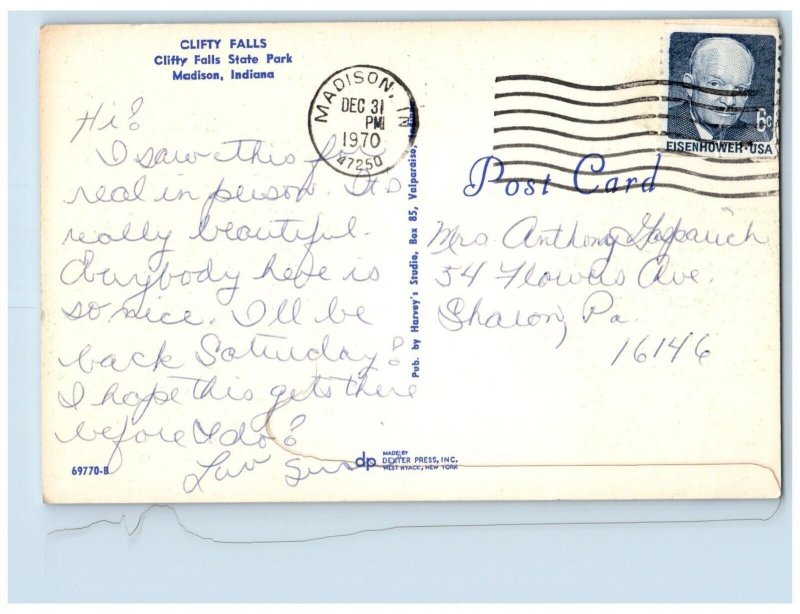 CLIFTY FALLS
Clifty Falls State Park
Madison, Indiana
MADISON, IN
DEC 31
PM
1970
47250
6c
EISENHOWER·USA
Post Card
Hi!
I saw this for
real in person. Its
really beautiful.
Everybody here is
so nice. I'll be
back Saturday!
I hope this gets there
before I do!
Luv
Mrs. Anthony
54 Flowers Ave.
Sharon, Pa.
16146
Pub. by Harvey's Studio, Box 85, Valparaiso,
69770-B
dp
MADE BY
DEXTER PRESS, INC.
WEST NYACK, NEW YORK